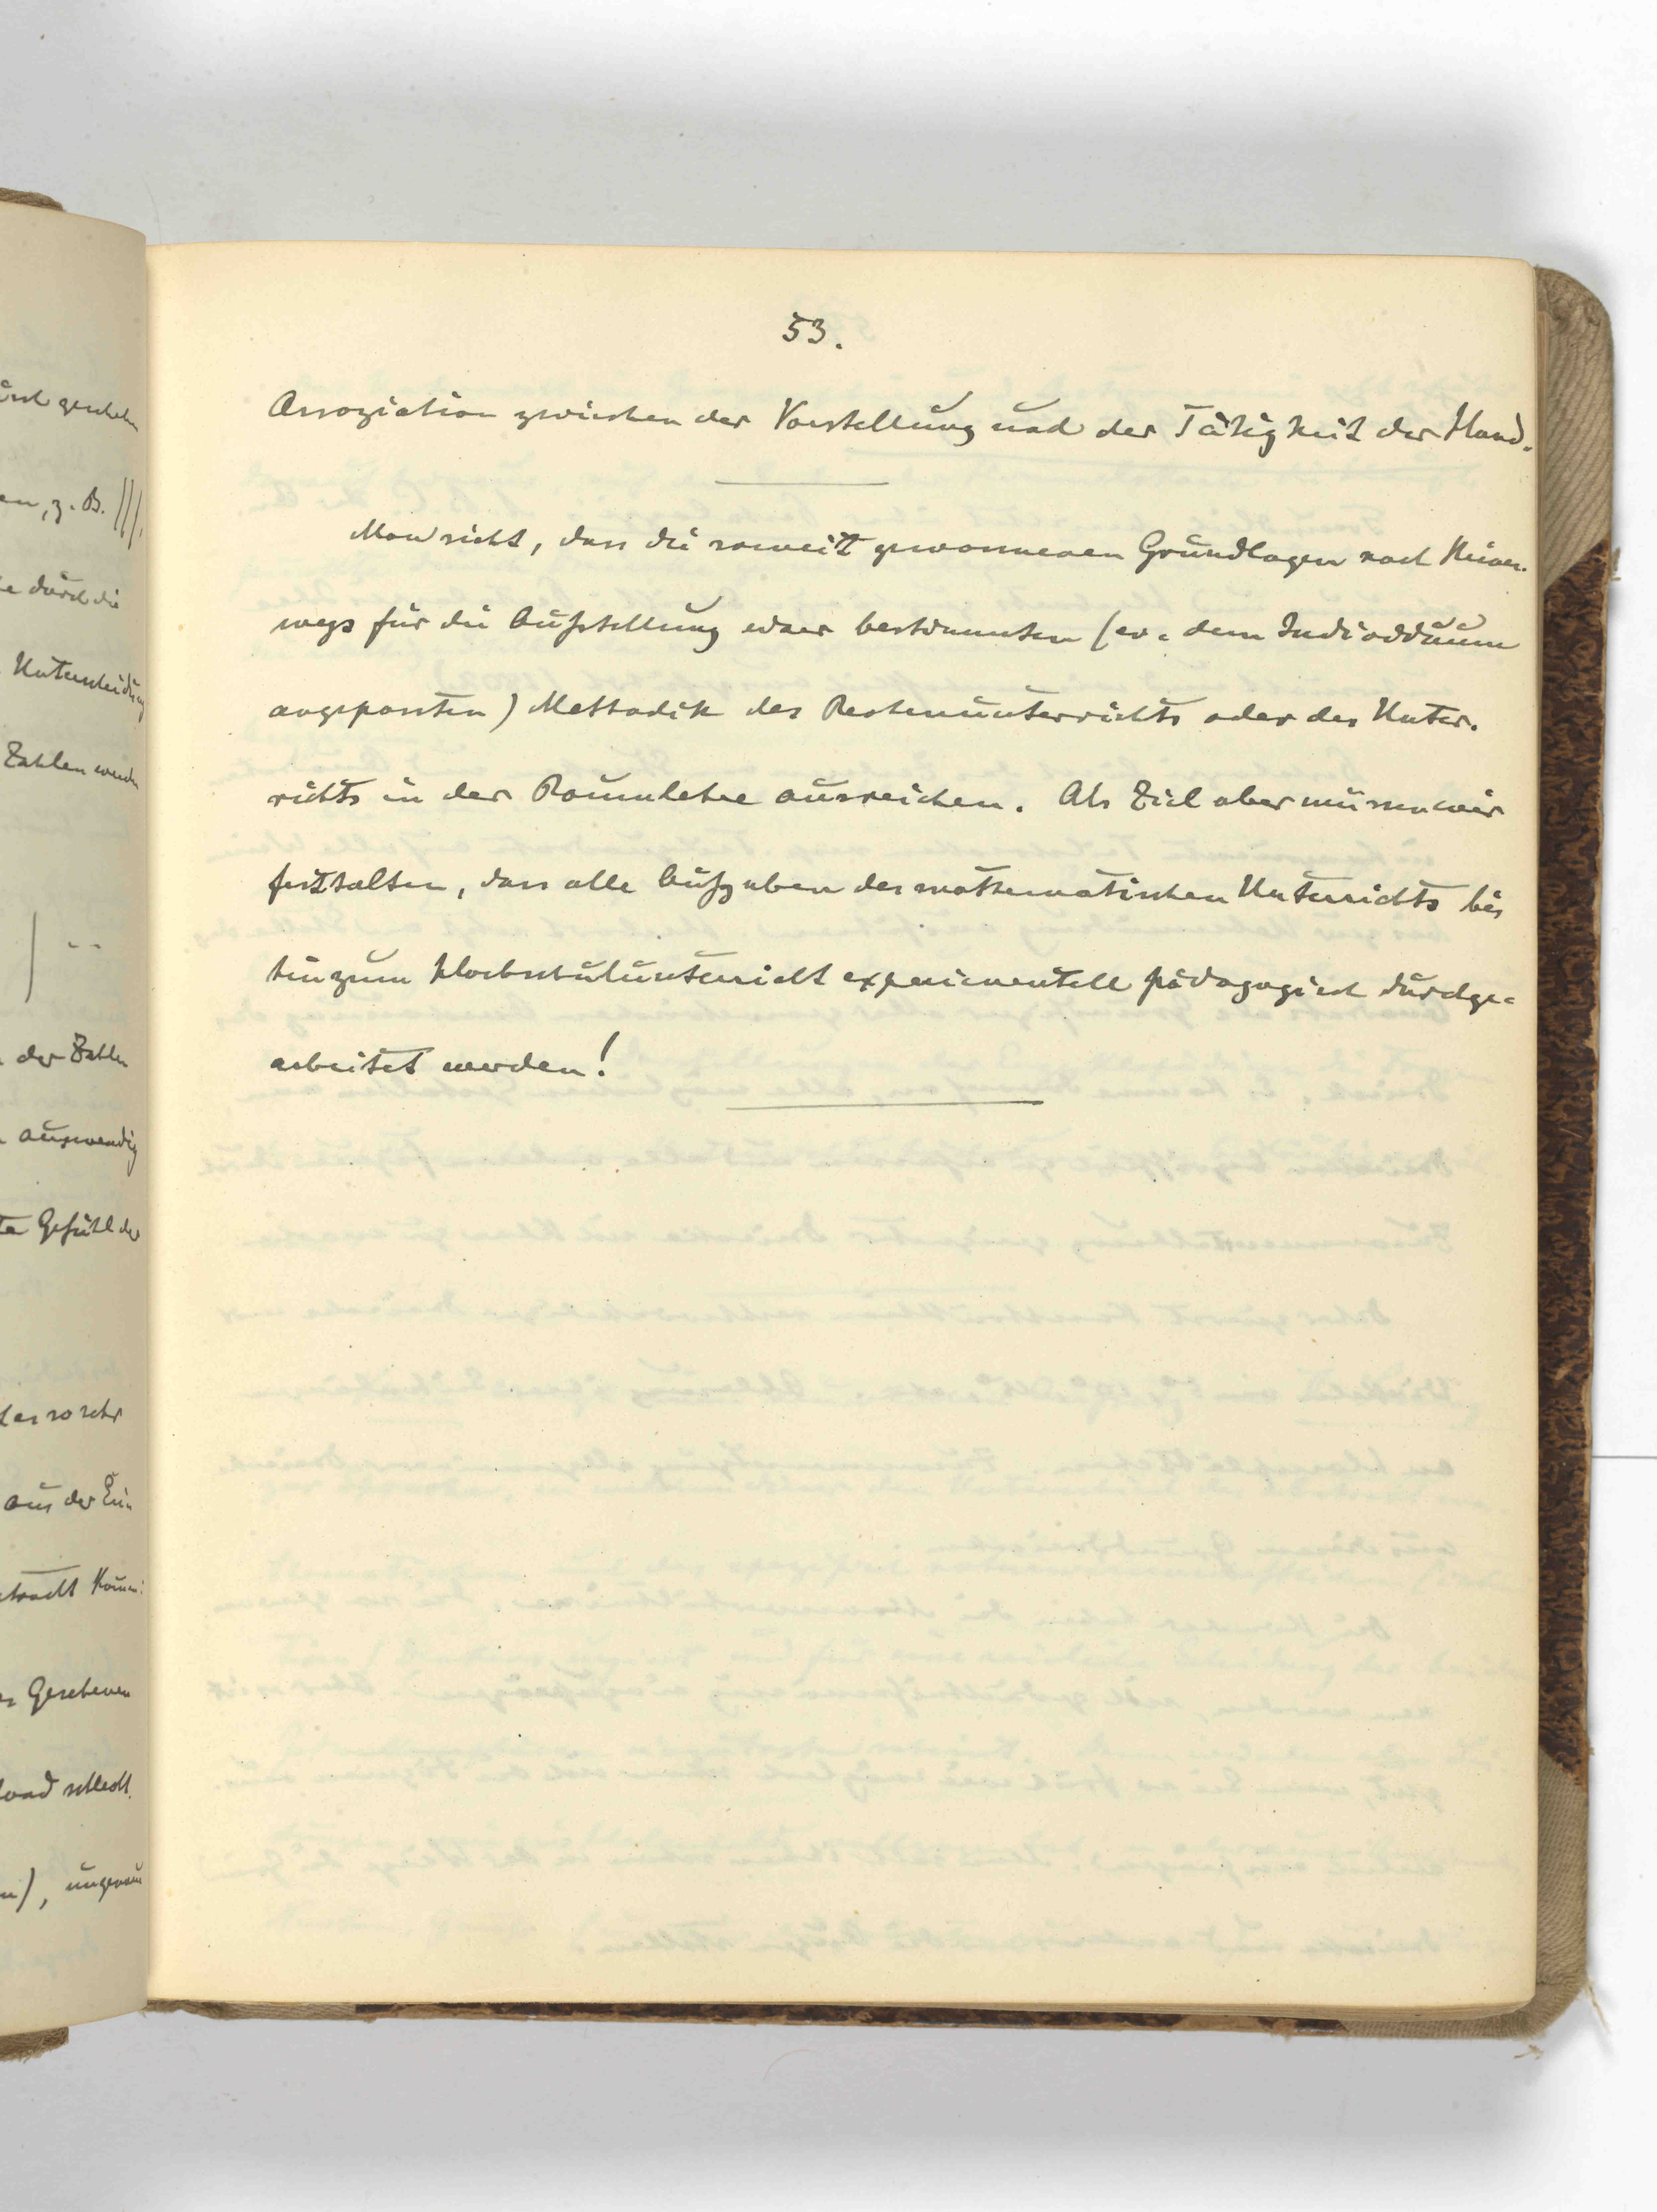 53.
Assoziation zwischen der Vorstellung und der Tätigkeit der Hand.
Man sieht, dass die soweit gewonnenen Grundlagen noch keines-
wegs für die Aufstellung einer bestimmten (ev. dem Individuum
angepassten) Methodik des Rechenunterrichts oder des Unter-
richts in der Raumlehre ausreichen. Als Ziel aber müssen wir
festhalten, dass alle Aufgaben des mathematischen Unterrichts bis
hin zum Hochschulunterricht experimentell pädagogisch durchge-
arbeitet werden!
en, z. B. |||.
durch die
Unterscheidung
Zahlen werden
der Zahlen
auswendig
Gefühl der
es so sehr
aus der Erin
Gesehenen
schlecht.
), ungenau